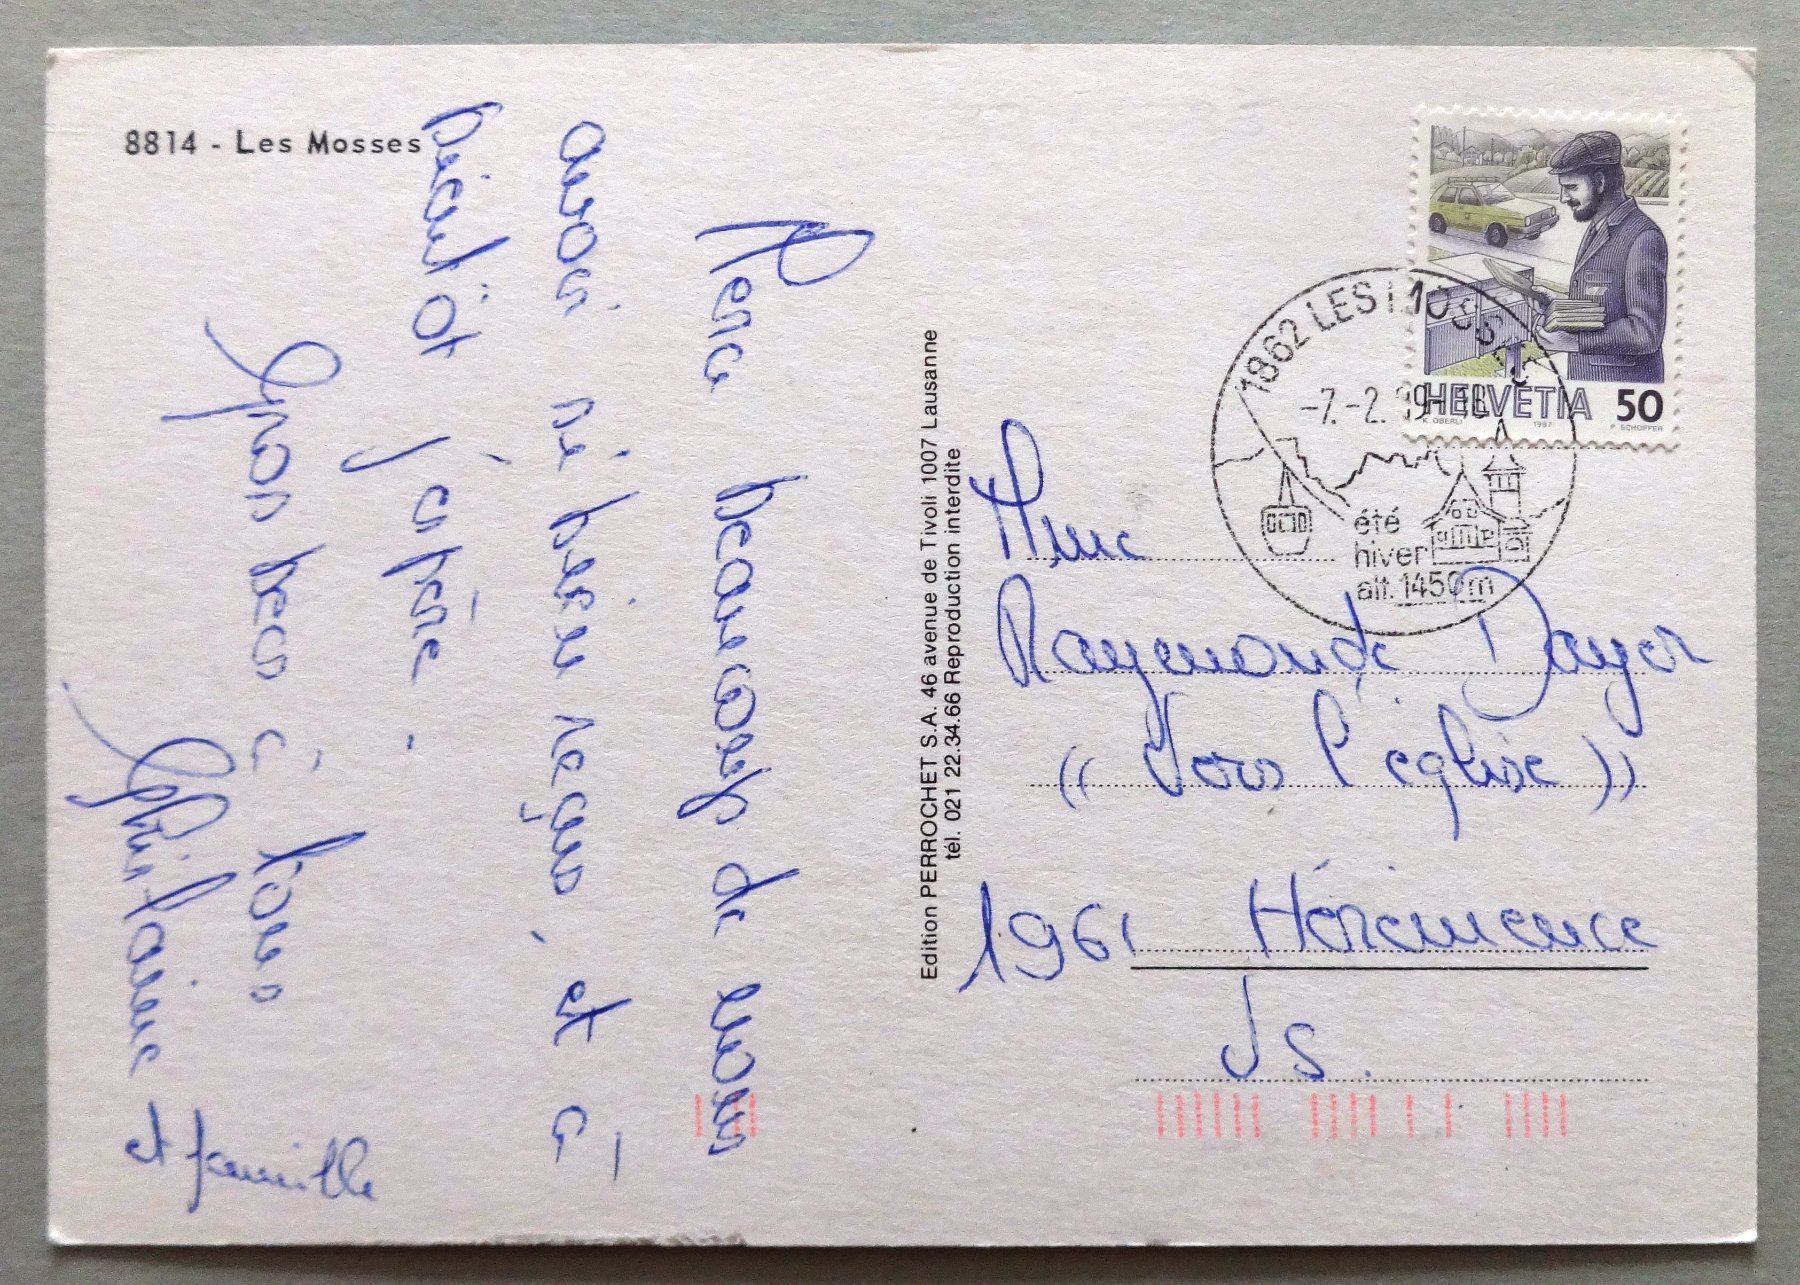 8814 - Les Mosses
Merci beaucoup de nous
avoir si bien reçus, et à
bientôt j'espère.
Gros becs à tous
Ghislaine
et famille
Edition PERROCHET S.A. 46 avenue de Tivoli 1007 Lausanne
tél. 021 22.34.66 Reproduction interdite
HELVETIA 50
K. OBERLI 1987 P. SCHOPFER
1862 LES MOSSES
-7.-2.
été
hiver
alt. 1450m
Mme
Raymonde Dayer
« Vers l'église »
1961 Hérémence
Vs.